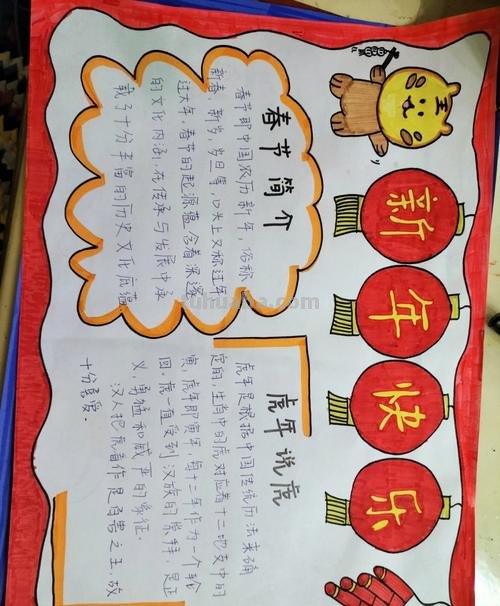 新年快乐
王
春节简介
春节即中国农历新年,俗称
新春、新岁、岁旦等,口头上又称过年
过大年,春节的起源蕴含着深邃
的文化内涵,在传承与发展中承
载了十分丰富的历史文化底蕴
虎年说虎
虎年是根据中国传统历法来确
定的,生肖中的虎对应着十二地支中的
寅,虎年即寅年,每十二年作为一个轮
回。虎一直受到汉族的崇拜,是正
义、勇猛和威严的象征
汉人把虎看作是百兽之王,故
十分喜爱。